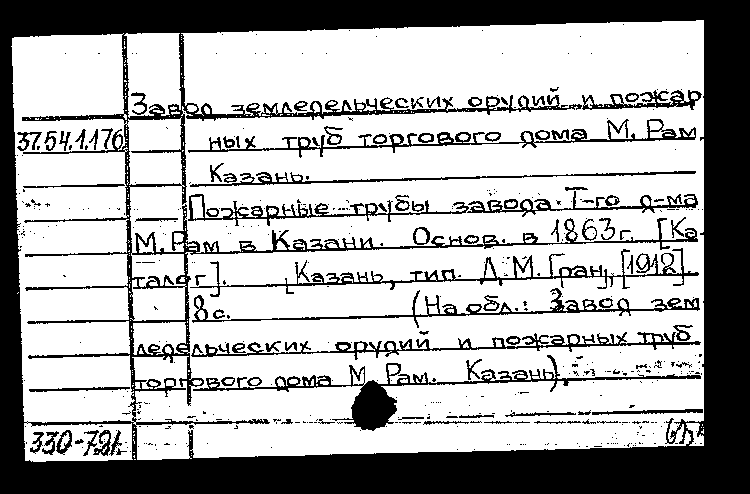 Завод земледельческих орудий и пожар
37.54.1.176 ных труб торгового дома М. Рам.
Казань.
Пожарные трубы завода Т-го д-ма
М. Рам в Казани. Основ. в 1863 г. [Ка-
талог]. [Казань, тип. Д.М. Гран], [1912].
8 с. (На обл.: Завод зем
ледельческих орудий и пожарных труб
торгового дома М Рам. Казань).